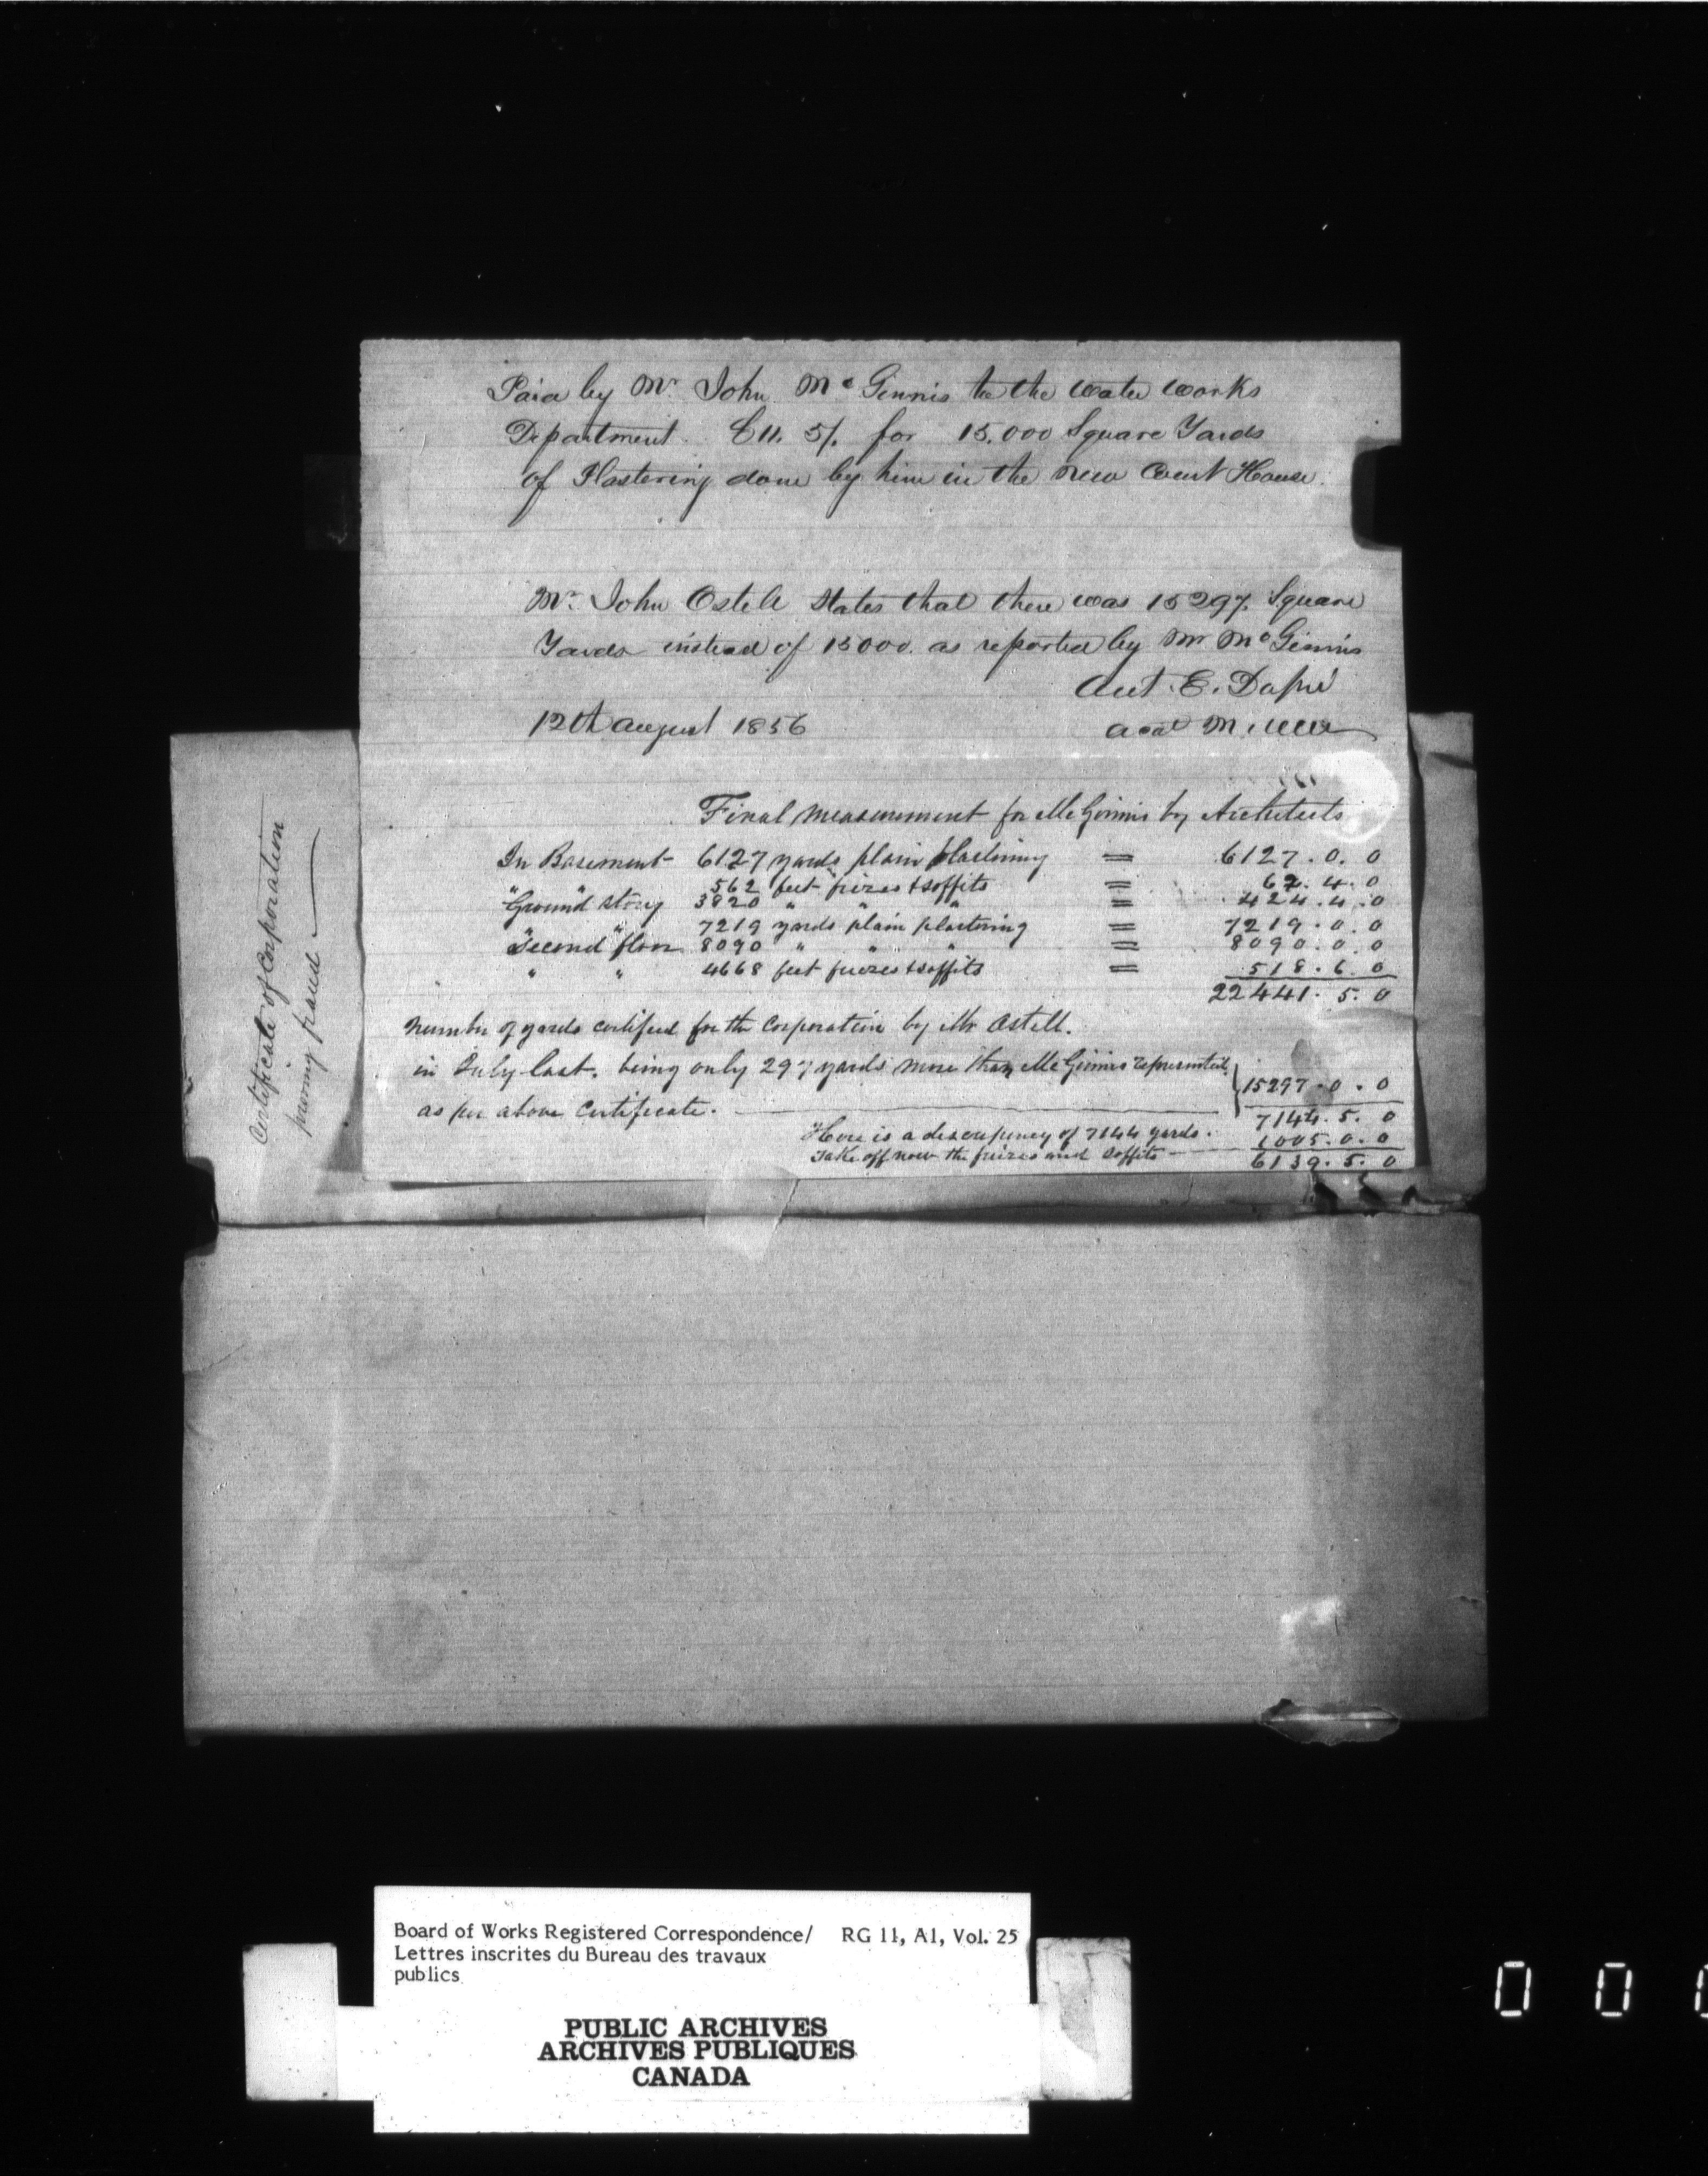 Paid by Mr. John McGinnis to the Water Works
Department £11. 5/. for 15.000 Square Yards
of Plastering done by him in the New Court House.
Mr. John Ostell states that there was 15297. Square
Yards instead of 15000. as reported by Mr McGinnis
12th August 1856
Final measurement for McGinnis by Architects
In Basement 6127 yards plain plastering = 6127.0.0
" " 562 feet friezes & soffits = 62.4.0
Ground story 3820 " " " = 424.4.0
" " 7219 yards plain plastering = 7219.0.0
Second floor 8090 " " " = 8090.0.0
" " 4668 feet friezes & soffits = 518.6.0
22441.5.0
number of yards certified for the Corporation by Mr Ostell.
in July last. being only 297 yards more than McGinnis represented, 15297.0.0
as per above Certificate. 7144.5.0
Here is a discrepency of 7144 yards. 1005.0.0
Take off now the friezes and soffits 6139.5.0
Certificate of Corporation
proving fraud
Board of Works Registered Correspondence/ RG 11, A1, Vol. 25
Lettres inscrites du Bureau des travaux
publics
PUBLIC ARCHIVES
ARCHIVES PUBLIQUES
CANADA
0 0